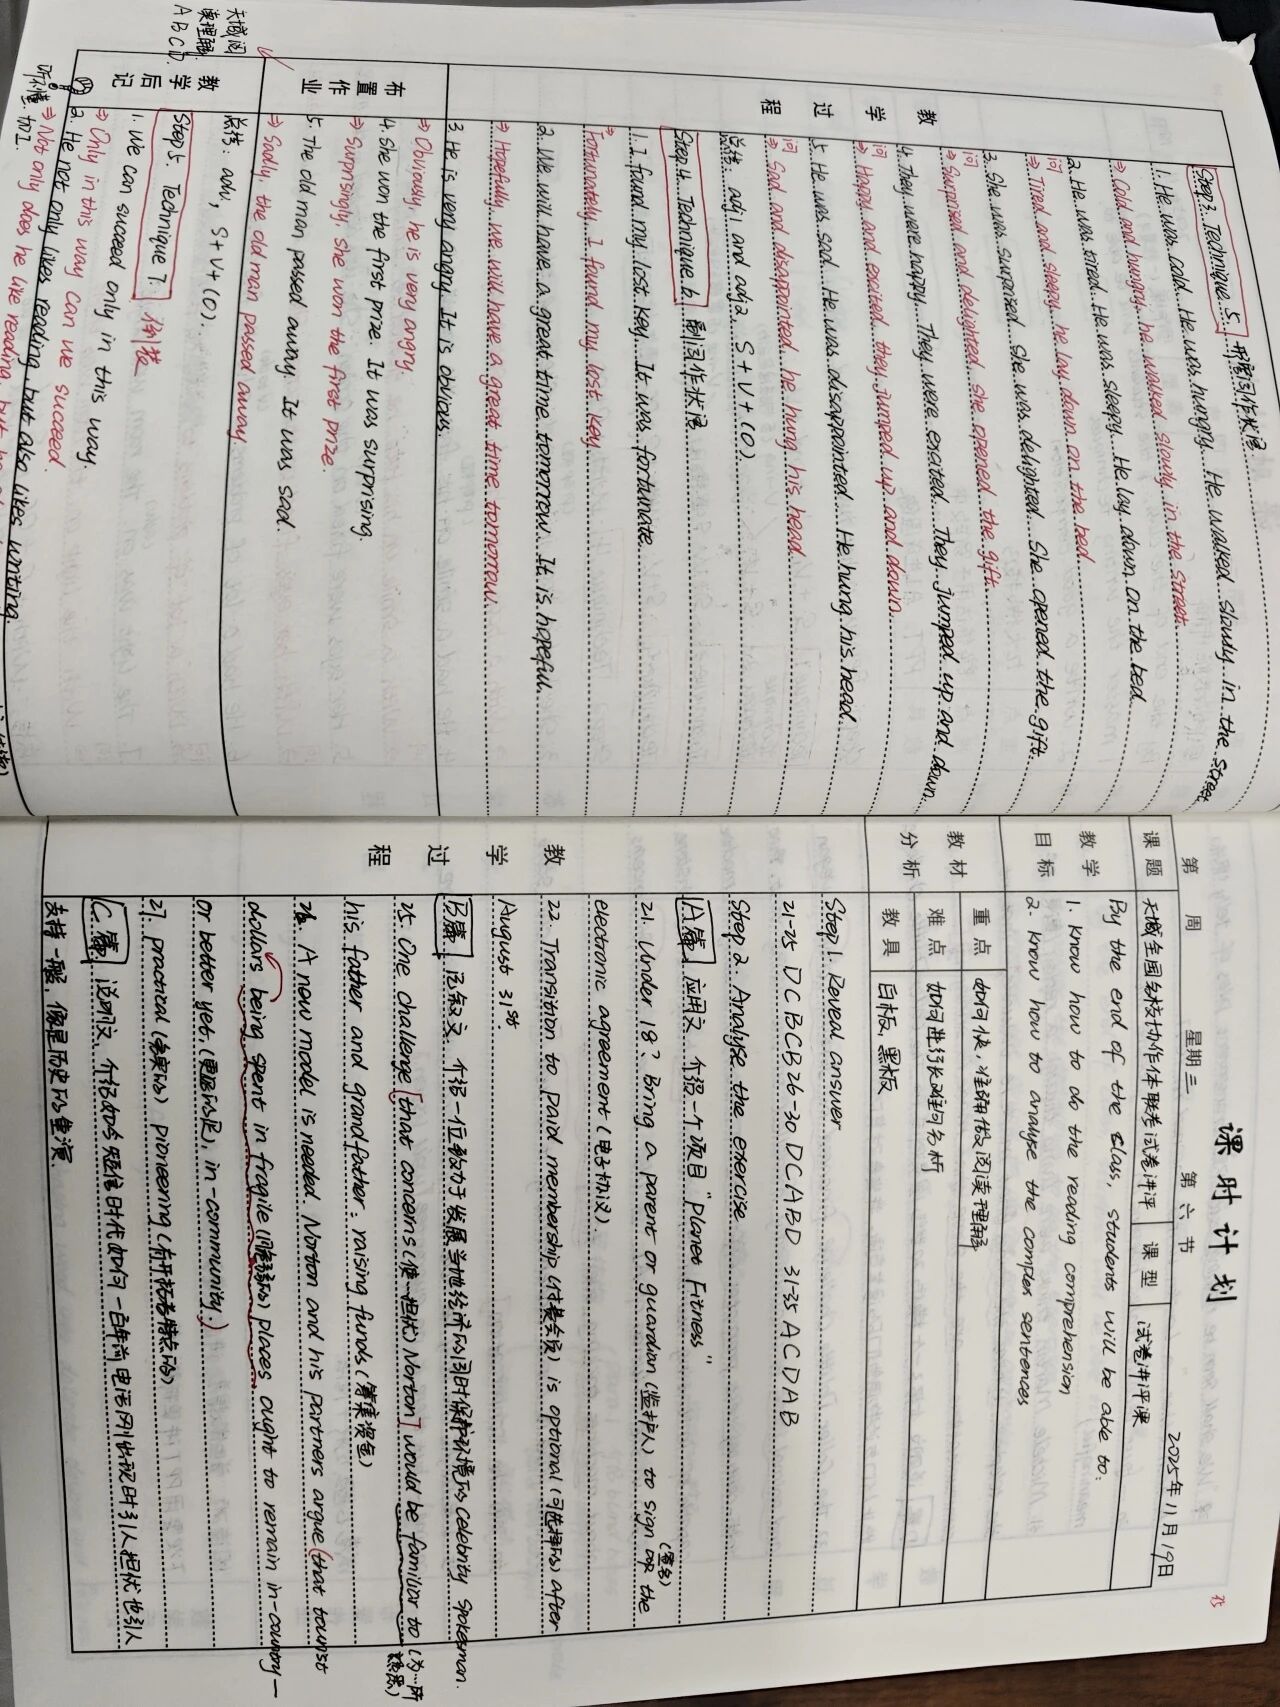 Step 3. Technique 5. 形容词作状语
1. He was cold. He was hungry. He walked slowly in the street.
⇒ Cold and hungry, he walked slowly in the street.
2. He was tired. He was sleepy. He lay down on the bed.
问
⇒ Tired and sleepy, he lay down on the bed.
3. She was surprised. She was delighted. She opened the gift.
问
⇒ Surprised and delighted, she opened the gift.
4. They were happy. They were excited. They jumped up and down.
问
⇒ Happy and excited, they jumped up and down.
5. He was sad. He was disappointed. He hung his head.
问
⇒ Sad and disappointed, he hung his head.
总结: adj1 and adj2, S+V+(O).
Step 4. Technique 6. 副词作状语
1. I found my lost key. It was fortunate.
⇒ Fortunately, I found my lost key.
2. We will have a great time tomorrow. It is hopeful.
⇒ Hopefully, we will have a great time tomorrow.
3. He is very angry. It is obvious.
⇒ Obviously, he is very angry.
4. She won the first prize. It was surprising.
⇒ Surprisingly, she won the first prize.
5. The old man passed away. It was sad.
⇒ Sadly, the old man passed away.
总结: adv, S+V+(O).
Step 5. Technique 7. 倒装
1. We can succeed only in this way.
⇒ Only in this way can we succeed.
2. He not only likes reading but also likes writing.
⇒ Not only does he like reading but he
教学过程
布置作业
教学后记
天域阅读理解
A B C D
课时计划
2025年11月19日
第 周 星期三 第六节
课题 天域全国名校协作体联考试卷讲评 课型 试卷讲评课
教学目标
By the end of the class, students will be able to:
1. know how to do the reading comprehension
2. know how to analyse the complex sentences
教材分析
重点 如何快、准确做阅读理解
难点 如何进行长难句分析
教具 白板、黑板
教学过程
Step 1. Reveal answer
21-25 DCBCB 26-30 DCABD 31-35 ACDAB
Step 2. Analyse the exercise
A篇 应用文 介绍一个项目 "Planet Fitness"
21. Under 18? Bring a parent or guardian (监护人) to sign (签名) the
electronic agreement (电子协议).
22. Transition to paid membership (付费会员) is optional (可选择的) after
August 31st.
B篇 记叙文 介绍一位致力于发展当地经济的同时保护环境的celebrity spokesman.
25. One challenge [that concerns (使…担忧) Norton] would be familiar to (为…所熟悉)
his father and grandfather: raising funds (筹集资金)
26. A now model is needed. Norton and his partners argue (that tourist
dollars being spent in fragile (脆弱的) places ought to remain in-country—
or better yet, (更好的是), in-community.)
27. practical (务实的) pioneering (有开拓者特点的)
C篇 说明文 介绍如今短信时代如何一百年前电话刚出现时引人担忧也引人
支持一般, 像是历史的重演.